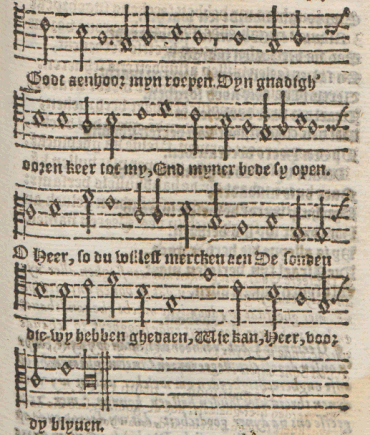 Godt aenhoor myn roepen. Dyn gnadigh'
ooren keer tot my, End myner bede sy open.
O Heer, so du willest mercken aen De sonden
die wy hebben ghedaen, Wie kan, Heer, voor
dy blyuen.